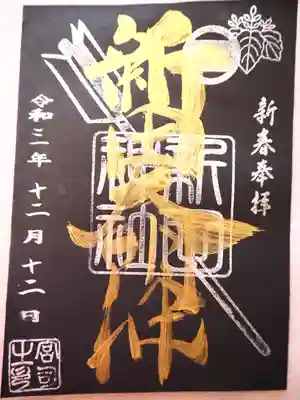 新春奉拝
新田神社
令和三年十二月十二日
宮司之印